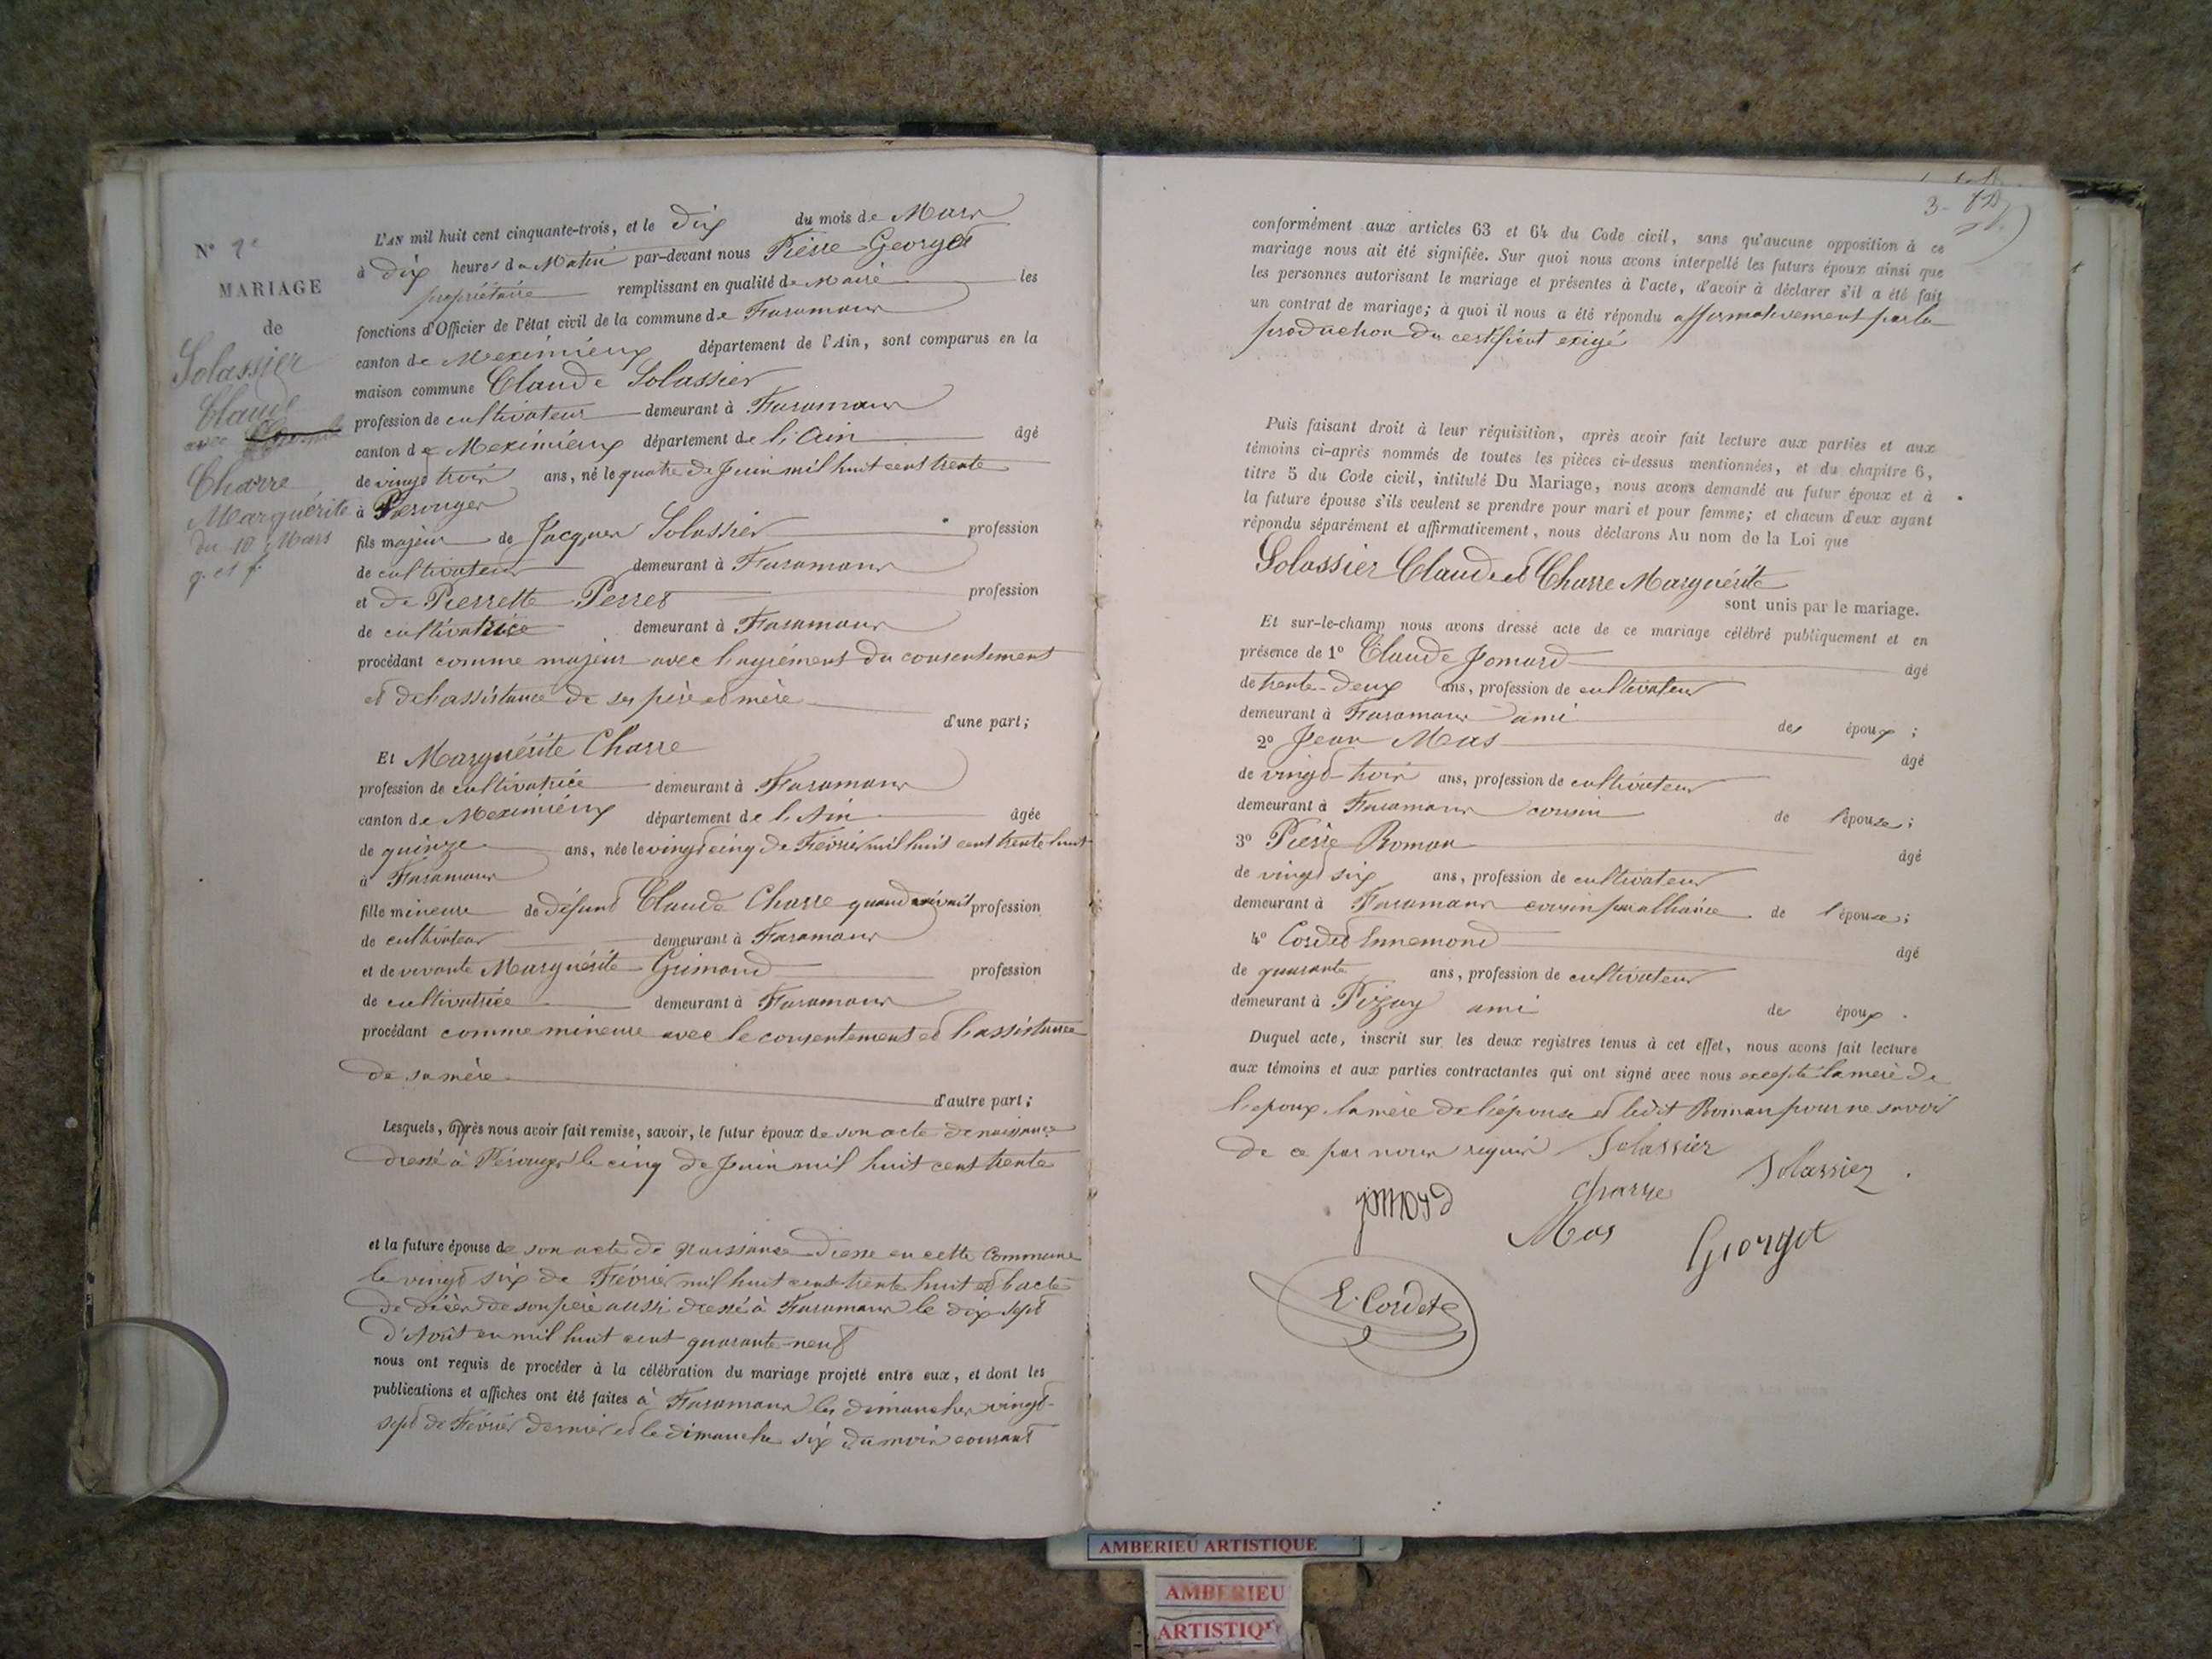 N° 2e
MARIAGE
de
Solassier
Claude
avec
Charre
Marguérite
du 10 Mars
g. et f.
L'AN mil huit cent cinquante-trois, et le dix du mois de Mars
à dix heures du Matin par-devant nous Pierre Georget
propriétaire remplissant en qualité de Maire les
fonctions d'Officier de l'état civil de la commune de Faramans
canton de Meximieux département de l'Ain, sont comparus en la
maison commune Claude Solassier
profession de cultivateur demeurant à Faramans
canton de Meximieux département de l'Ain âgé
de vingt trois ans, né le quatre de Juin mil huit cent trente
à Pérouges
fils majeur de Jacques Solassier profession
de cultivateur demeurant à Faramans
et de Pierrette Perret profession
de cultivatrice demeurant à Faramans
procédant comme majeur avec l'agrément du consentement
et de l'assistance de ses père et mère
d'une part;
Et Marguérite Charre
profession de cultivatrice demeurant à Faramans
canton de Meximieux département de l'Ain âgée
de quinze ans, née le vingt cinq de Février mil huit cent trente huit
à Faramans
fille mineure de défunt Claude Charre quand vivait profession
de cultivateur demeurant à Faramans
et de vivante Marguérite Grimand profession
de cultivatrice demeurant à Faramans
procédant comme mineure avec le consentement et l'assistance
de sa mère
d'autre part;
Lesquels, après nous avoir fait remise, savoir, le futur époux de son acte de naissance
dressé à Pérouges le cinq de Juin mil huit cent trente
et la future épouse de son acte de Naissance dressé en cette Commune
le vingt six de Février mil huit cent trente huit et l'acte
de décès de son père aussi dressé à Faramans le dix sept
d'Août en mil huit cent quarante-neuf
nous ont requis de procéder à la célébration du mariage projeté entre eux, et dont les
publications et affiches ont été faites à Faramans les dimanches vingt-
sept de Février dernier et le dimanche six du mois courant
conformément aux articles 63 et 64 du Code civil, sans qu'aucune opposition à ce
mariage nous ait été signifiée. Sur quoi nous avons interpellé les futurs époux ainsi que
les personnes autorisant le mariage et présentes à l'acte, d'avoir à déclarer s'il a été fait
un contrat de mariage; à quoi il nous a été répondu affirmativement par la
production du certificat exigé
Puis faisant droit à leur réquisition, après avoir fait lecture aux parties et aux
témoins ci-après nommés de toutes les pièces ci-dessus mentionnées, et du chapitre 6,
titre 5 du Code civil, intitulé Du Mariage, nous avons demandé au futur époux et à
la future épouse s'ils veulent se prendre pour mari et pour femme; et chacun d'eux ayant
répondu séparément et affirmativement, nous déclarons Au nom de la Loi que
Solassier Claude et Charre Marguérite
sont unis par le mariage.
Et sur-le-champ nous avons dressé acte de ce mariage célébré publiquement et en
présence de 1° Claude Jomard âgé
de trente-deux ans, profession de cultivateur
demeurant à Faramans ami des époux;
2° Jean Mas âgé
de vingt-trois ans, profession de cultivateur
demeurant à Faramans cousin de l'épouse;
3° Pierre Roman âgé
de vingt six ans, profession de cultivateur
demeurant à Faramans cousin par alliance de l'épouse;
4° Cordet Ennemond âgé
de quarante ans, profession de cultivateur
demeurant à Pizay ami des époux.
Duquel acte, inscrit sur les deux registres tenus à cet effet, nous avons fait lecture
aux témoins et aux parties contractantes qui ont signé avec nous excepté la mère de
l'epoux la mère de l'épouse et ledit Roman pour ne savoir
de ce par nous requis Solassier
Solassier
jomard charre
Mas Georget
E. Cordet
AMBERIEU ARTISTIQUE
AMBERIEU
ARTISTIQ